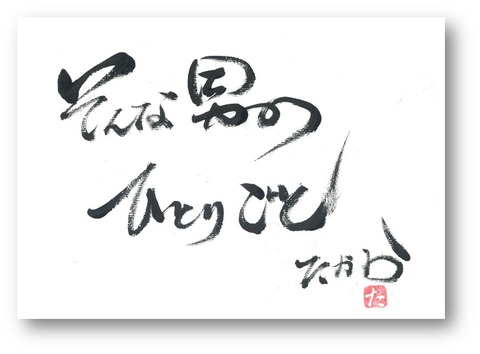 そんな男の
ひとりごと
たから
た